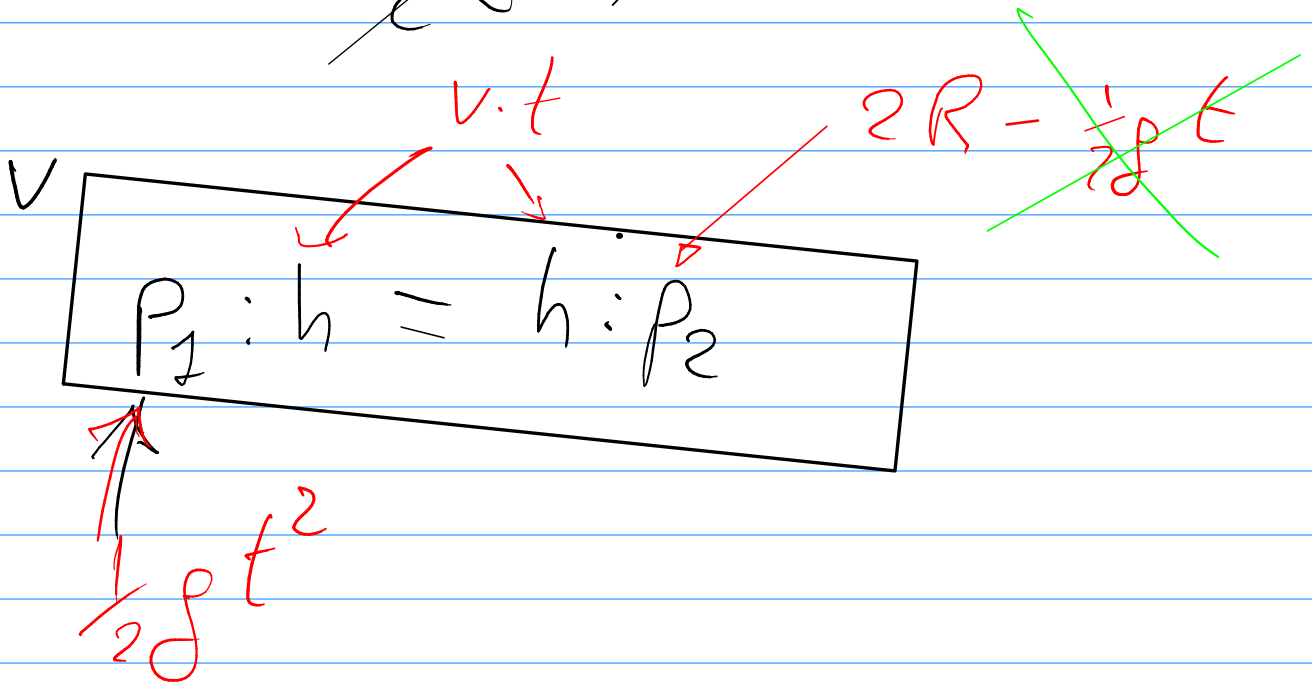 v·t
2R - 1/2 g t
V
p₁ : h = h : p₂
1/2 g t²